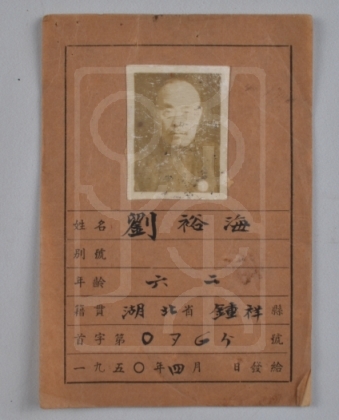 姓名 劉裕海
別號
年齡 六二
籍貫 湖北省鍾祥縣
首字第 號
一九五〇年四月 日發給